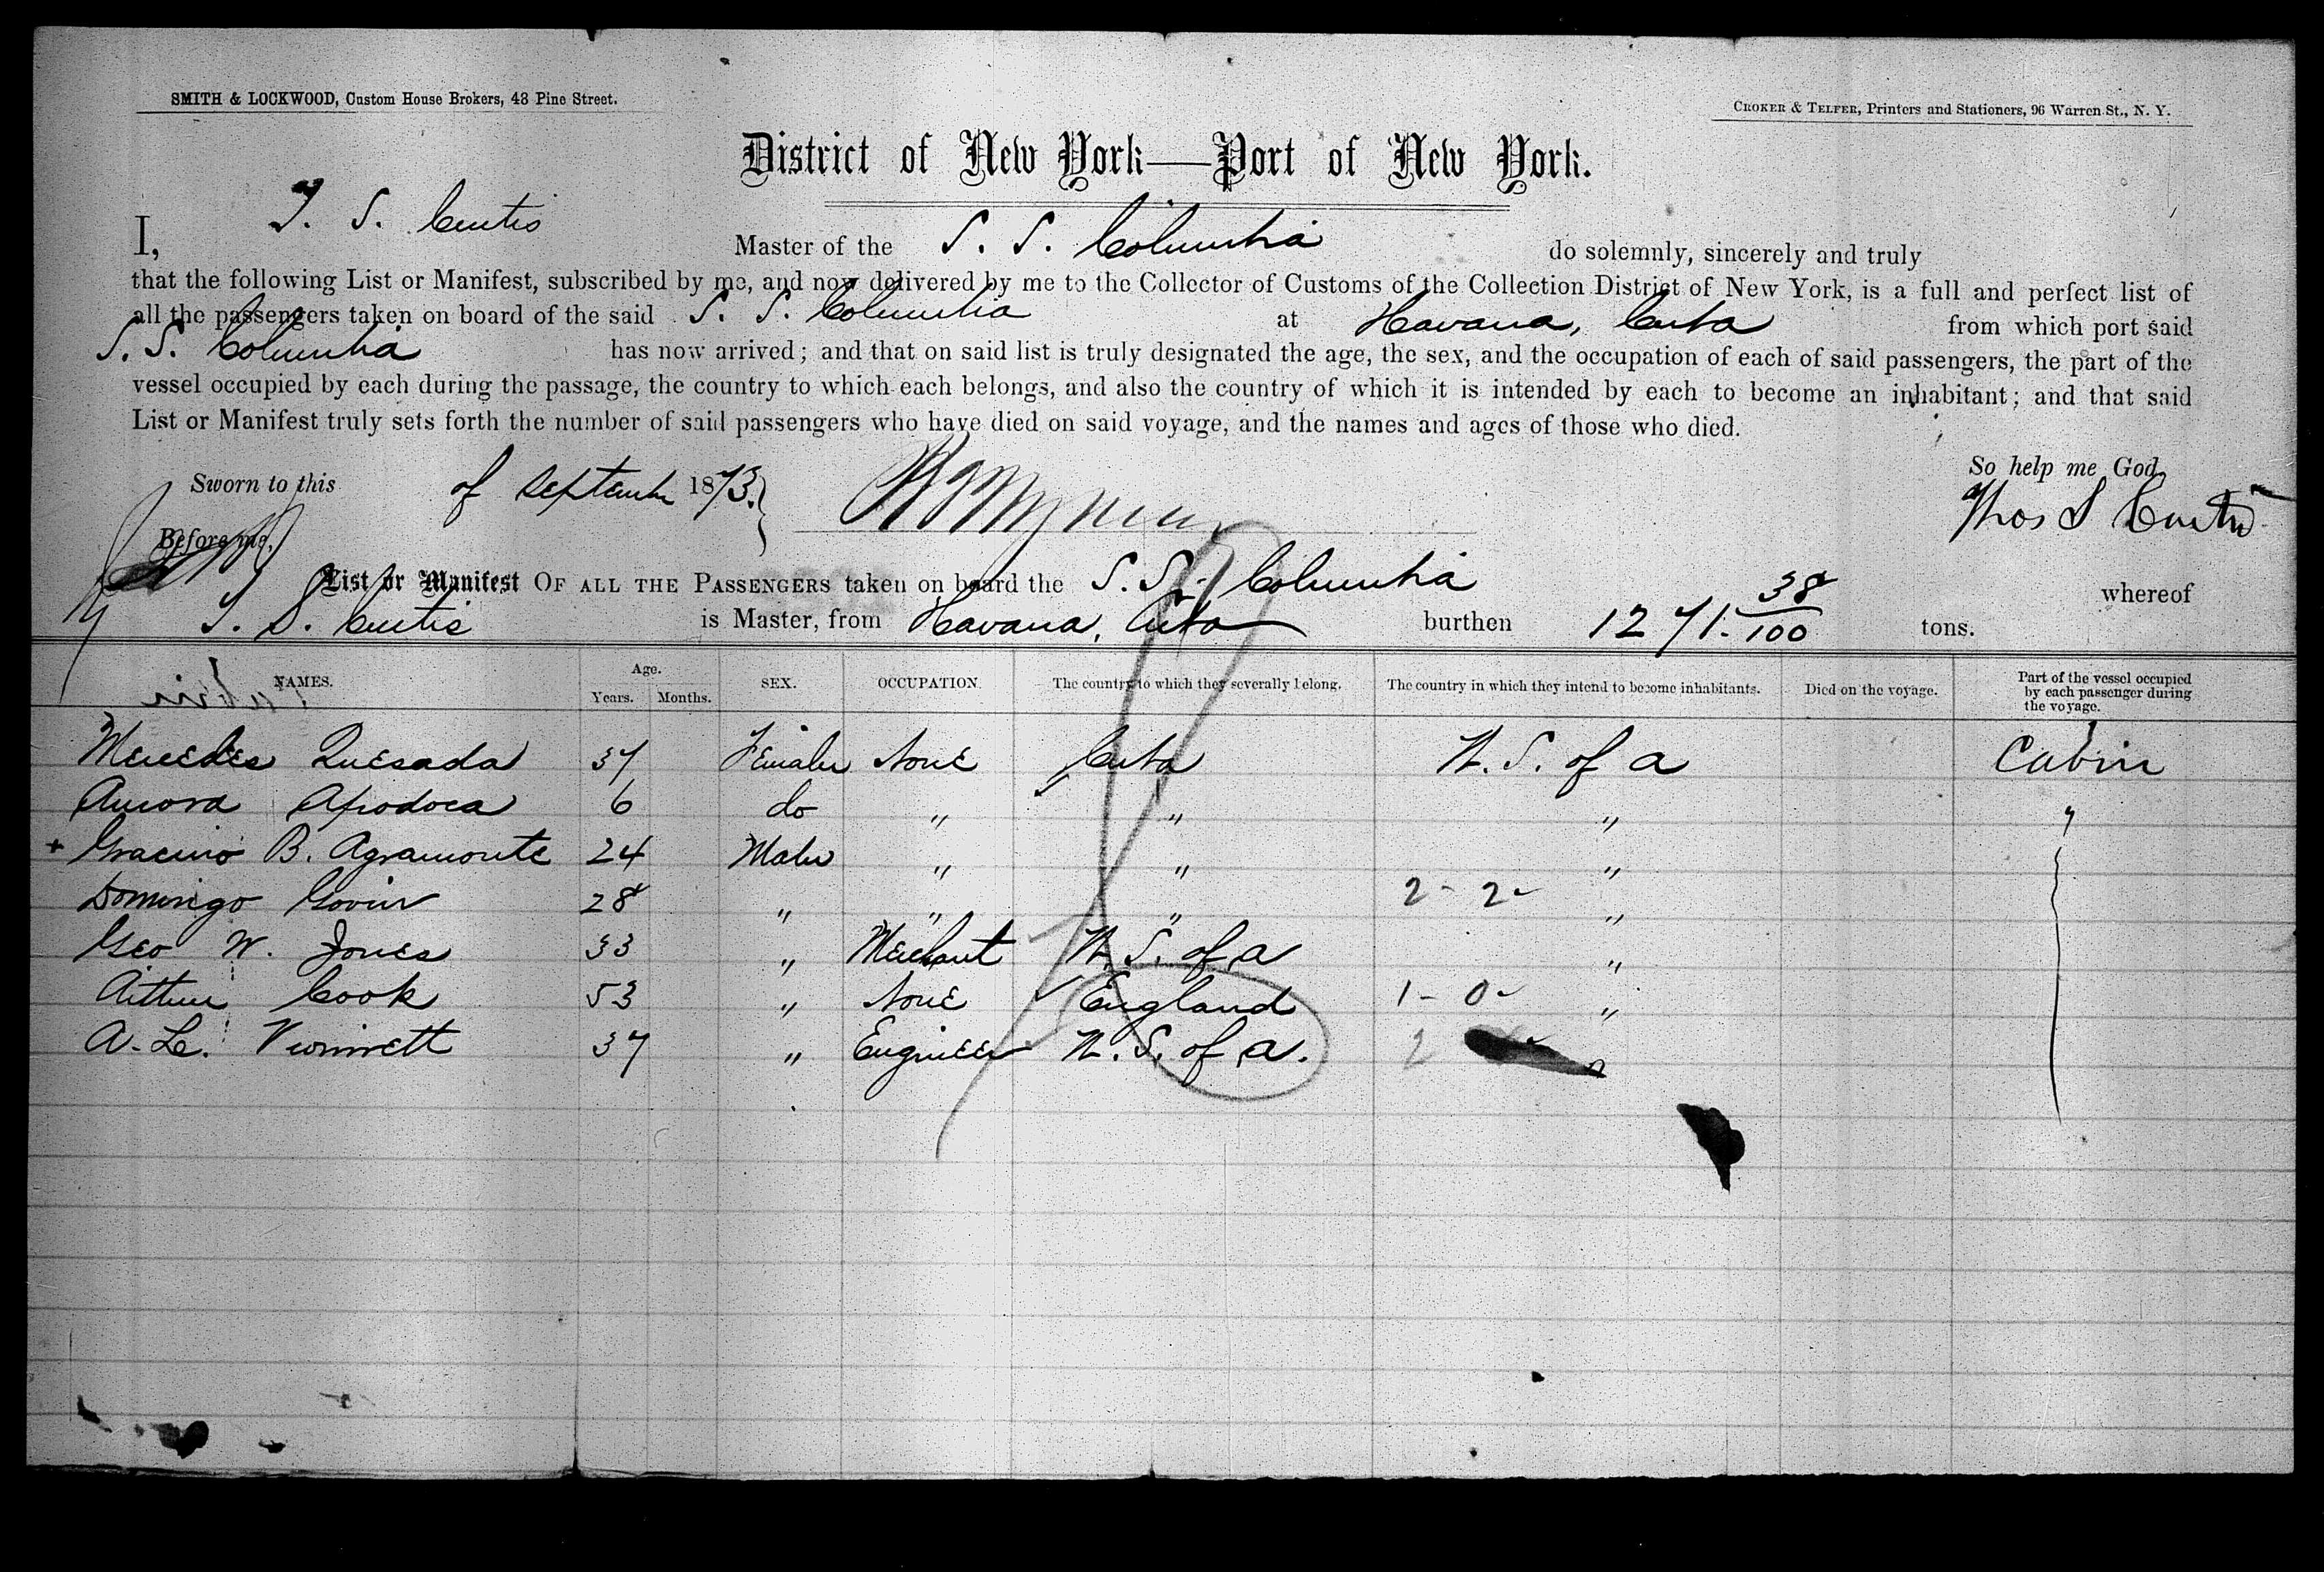 SMITH & LOCKWOOD, Custom House Brokers, 43 Pine Street.
CROKER & TELFER, Printers and Stationers, 96 Warren St., N. Y.
District of New York—Port of New York.
I, T. S. Curtis Master of the S. S. Columbia do solemnly, sincerely and truly
that the following List or Manifest, subscribed by me, and now delivered by me to the Collector of Customs of the Collection District of New York, is a full and perfect list of
all the passengers taken on board of the said S. S. Columbia at Havana, Cuba from which port said
S. S. Columbia has now arrived; and that on said list is truly designated the age, the sex, and the occupation of each of said passengers, the part of the
vessel occupied by each during the passage, the country to which each belongs, and also the country of which it is intended by each to become an inhabitant; and that said
List or Manifest truly sets forth the number of said passengers who have died on said voyage, and the names and ages of those who died.
So help me God,
Sworn to this of September 1873.
Thos S Curtis
Before me,
List or Manifest OF ALL THE PASSENGERS taken on board the S. S. Columbia whereof
T. S. Curtis is Master, from Havana, Cuba burthen 1271. 38/100 tons.
NAMES. Age. Years. Months. SEX. OCCUPATION. The country to which they severally belong. The country in which they intend to become inhabitants. Died on the voyage. Part of the vessel occupied by each passenger during the voyage.
Mercedes Quesada 37 Female None Cuba U. S. of a Cabin
Aurora Apodoca 6 do " " " "
+ Gracino B. Agramonte 24 Male " " "
Domingo Govin 28 " " " 2 - 2 - "
Geo W. Jones 33 " Merchant U. S. of a "
Arthur Cook 53 " None England 1 - 0 - "
A. Le. 37 " Engineer U. S. of a. 2